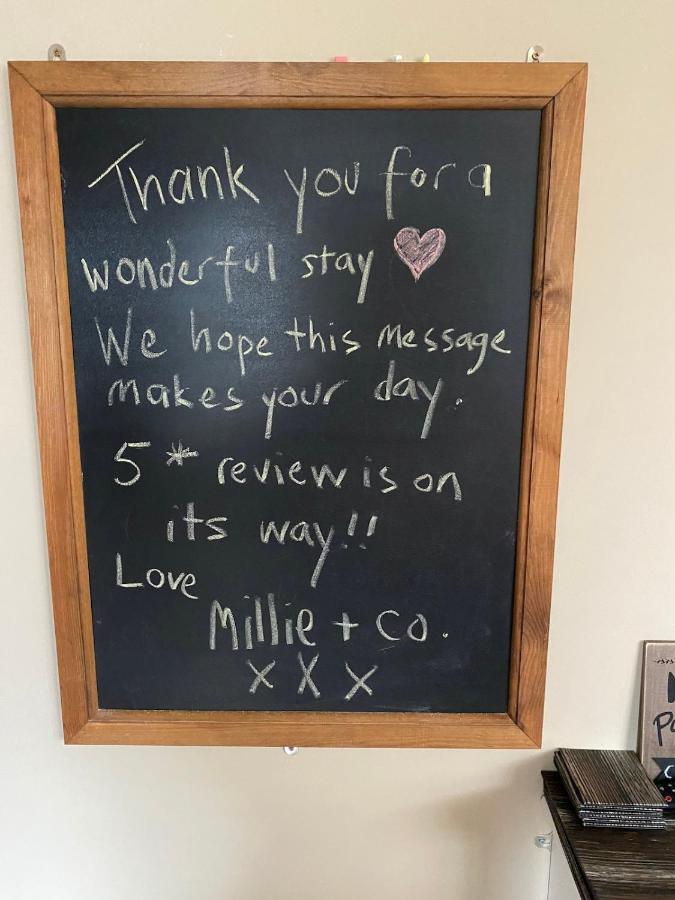 Thank you for a
wonderful stay
We hope this message
makes your day.
5 * review is on
its way!!
Love
Millie + co.
x X x